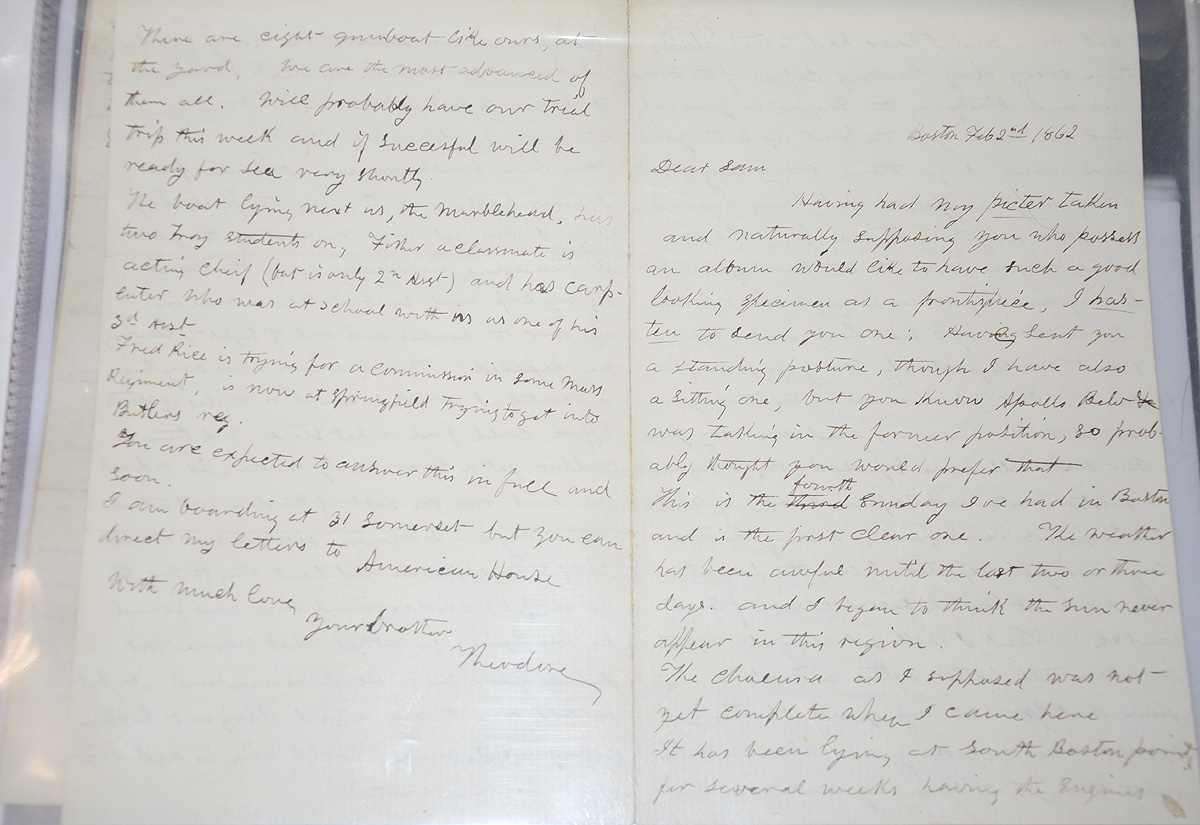 Boston Feb 2nd 1862
Dear Sam
Having had my picter taken
and naturally supposing you who possess
an album would like to have such a good
looking specimen as a frontispiece, I has-
ten to send you one; Having sent you
a standing posture, though I have also
a sitting one, but you know Apollo
was taking in the former position, so prob-
ably thought you would prefer that
fourth
This is the third Sunday I've had in Boston
and is the first clear one. The weather
has been awful until the last two or three
days. and I began to think the sun never
appear in this region.
The as I supposed was not
yet complete when I came here
It has been lying at South Boston point,
for several weeks having the Engines
There are eight gunboat like ours, at
the yard, We are the most advanced of
them all. Will probably have our trial
trip this week and if Succesful will be
ready for Sea very shortly.
The boat lying next us, the Marblehead, has
two Troy students on, Fisher a classmate is
acting Cheif (but is only 2n Asst) and has carp-
enter who was at school with us as one of his
3d Asst
Fred Rice is trying for a commission in some Mass
Regiment, is now at Springfield Trying to get into
Butlers reg.
You are expected to answer this in full and
soon.
I am boarding at 31 Somerset but you can
direct my letters to American House
With much love,
Your brother
Theodore